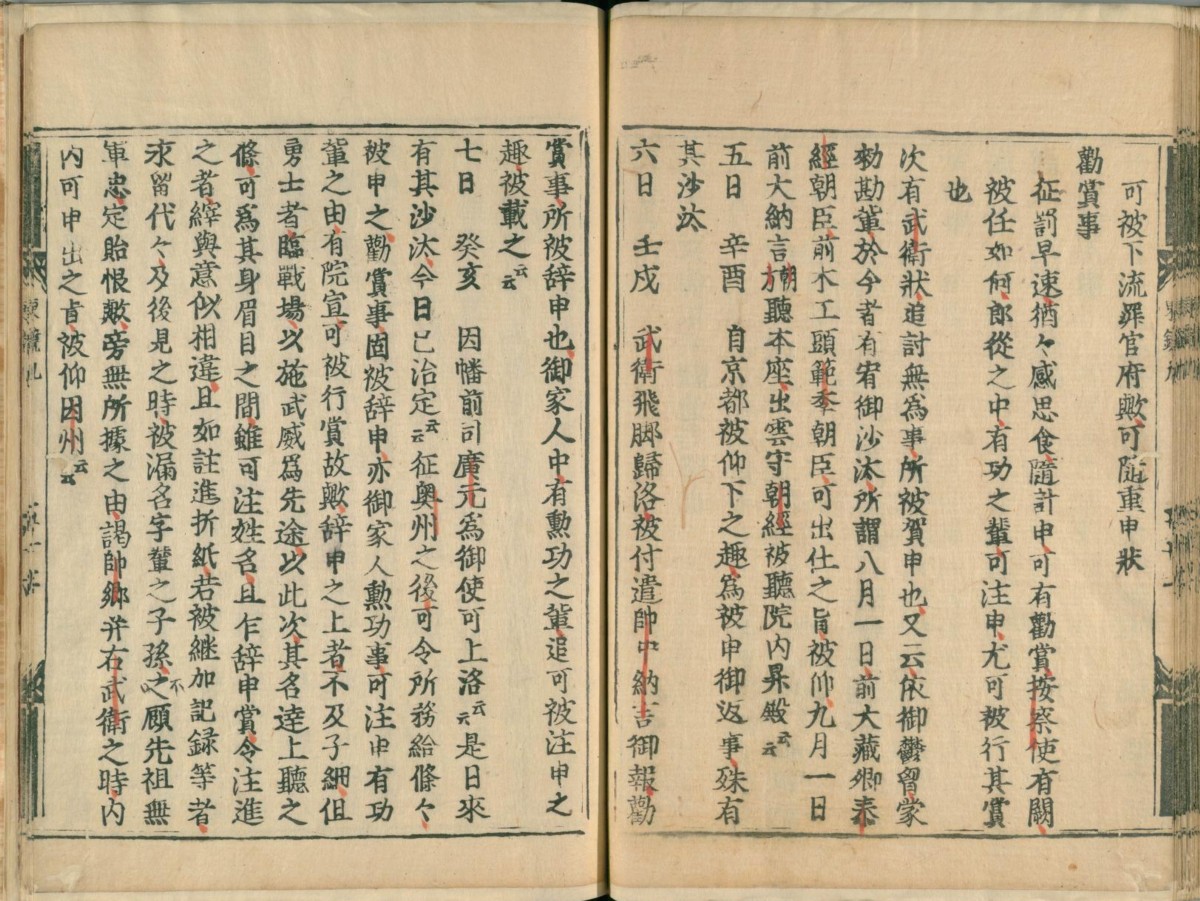 可被下流罪官府歟可隨重申狀
勸賞事
征罰早速猶々感思食隨計申可有勸賞按察使有闕
被任如何郎從之中有功之輩可注申尤可被行其賞
也
次有武衛狀追討無爲事所被賀申也又云依御鬱留蒙
勅勘輩於今者有宥御沙汰所謂八月一日前大藏卿泰
經朝臣前木工頭範季朝臣可出仕之旨被仰九月一日
前大納言朝方聽本座出雲守朝經被聽院内昇殿云云
五日　辛酉　自京都被仰下之趣爲被申御返事殊有
其沙汰
六日　壬戌　武衛飛脚歸洛被付遣帥中納言御報勸
賞事所被辞申也御家人中有勳功之輩追可被注申之
趣被載之云云
七日　癸亥　因幡前司廣元爲御使可上洛云云是日來
有其沙汰今日已治定云云征奥州之後可令所務給條々
被申之勸賞事固被辞申亦御家人勳功事可注申有功
輩之由有院宣可被行賞故歟辞申之上者不及子細但
勇士者臨戰場以施武威爲先途以此次其名達上聽之
條可爲其身眉目之間雖可注姓名且乍辞申賞令注進
之者縡與意似相違且如註進折紙若被継加記録等者
求留代々及後見之時被漏名字輩之子孫不之顧先祖無
軍忠定貽恨歟旁無所據之由謁帥郷并右武衛之時内
内可申出之旨被仰因州云云